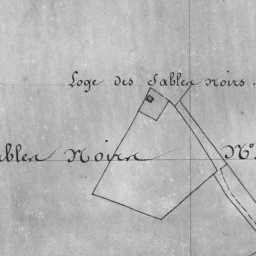 Loge des Sables noirs.
ables Noirs N°